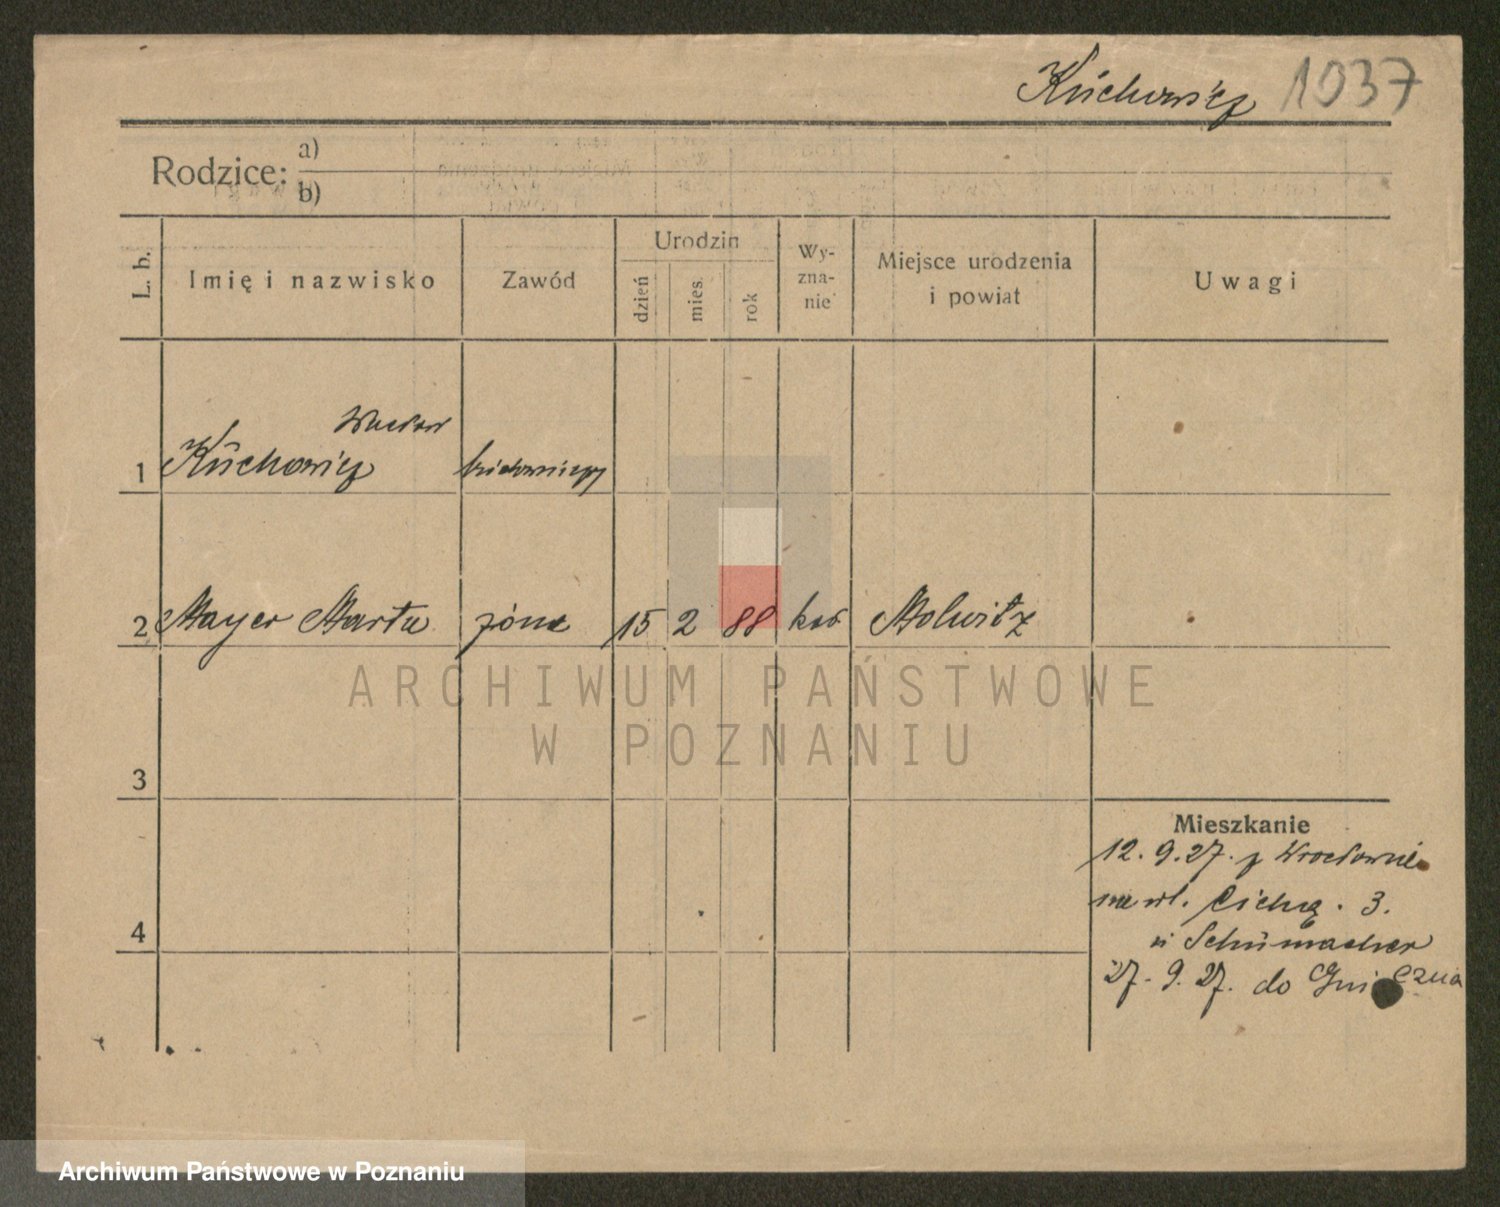 Kuchowicz 1037
Rodzice: a)
b)
L. b.
Imię i nazwisko
Zawód
Urodzin
dzień
mies.
rok
Wy-
zna-
nie
Miejsce urodzenia
i powiat
Uwagi
Wacław
1 Kuchowicz
2 Mayer Marta żona 15 2 88 kat Molwitz
ARCHIWUM PAŃSTWOWE
W POZNANIU
3
4
Mieszkanie
12. 9. 27. z Wrocławia
na ul. Cichą. 3.
u Schumacher
27. 9. 27. do
Archiwum Państwowe w Poznaniu